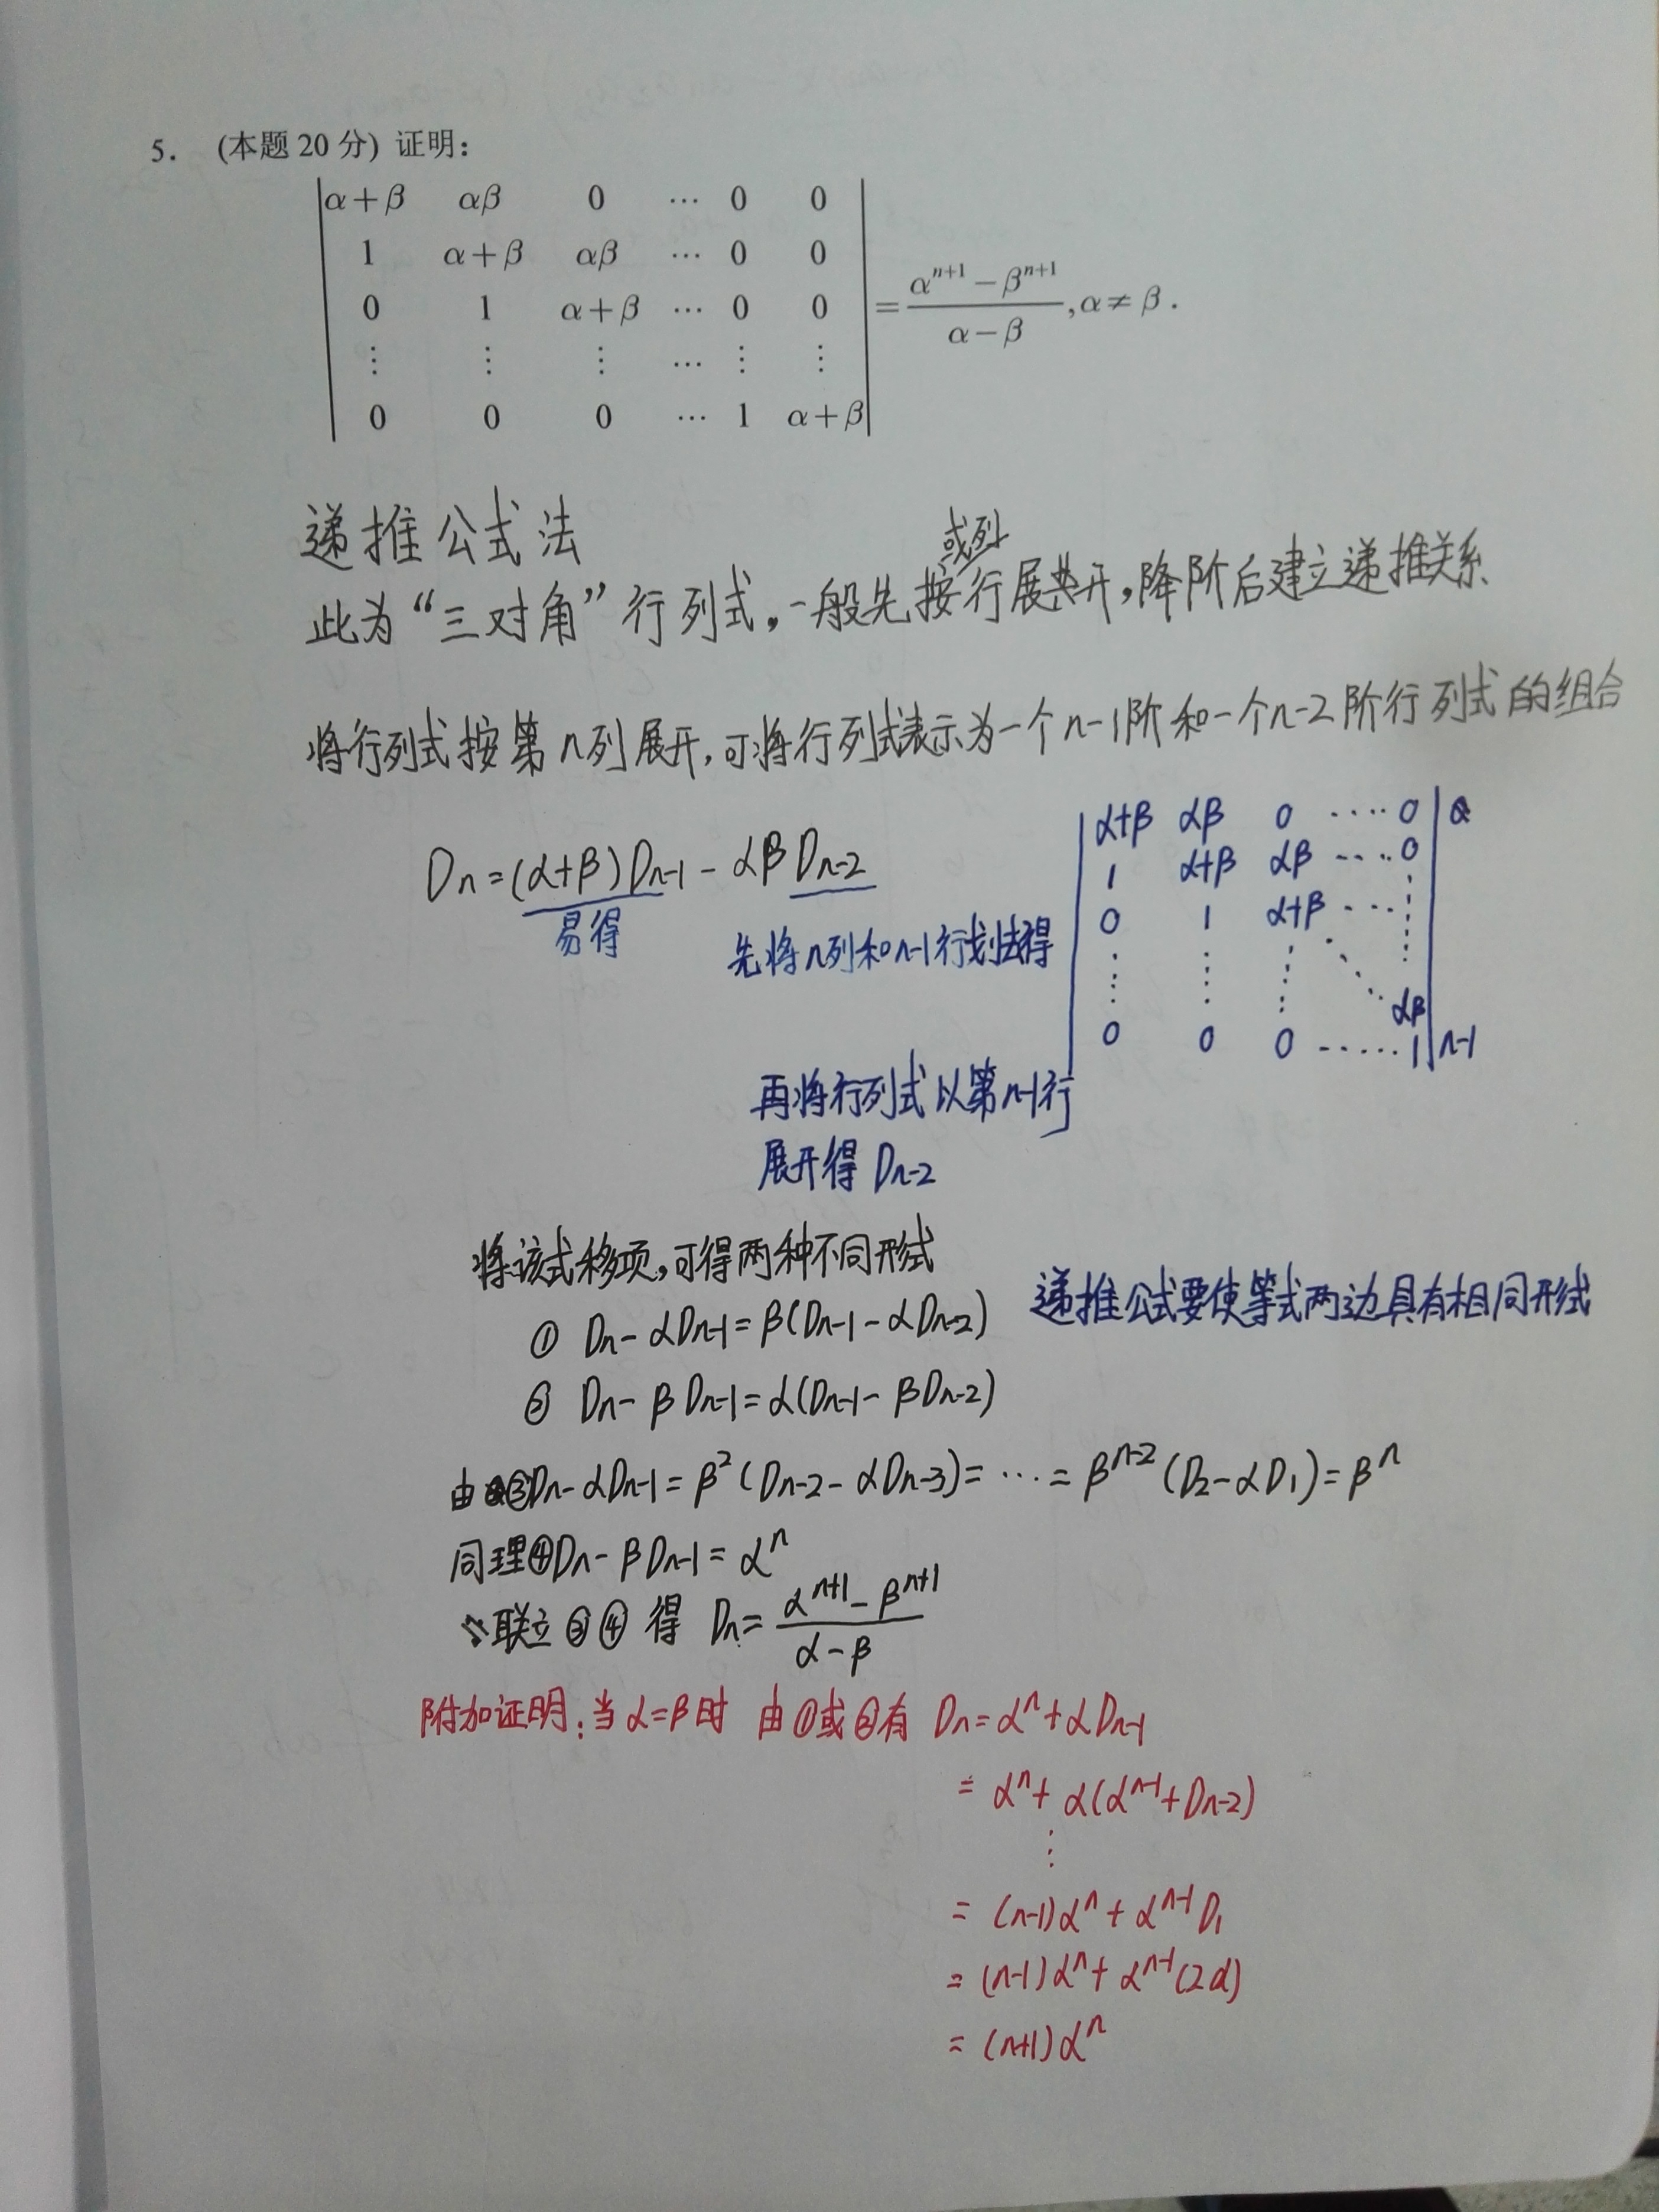 5. (本题 20 分) 证明：
α+β αβ 0 ⋯ 0 0
1 α+β αβ ⋯ 0 0
0 1 α+β ⋯ 0 0
⋮ ⋮ ⋮ ⋯ ⋮ ⋮
0 0 0 ⋯ 1 α+β
= (α^{n+1} − β^{n+1}) / (α − β), α ≠ β .
递推公式法
或列
此为“三对角”行列式，一般先按行展开，降阶后建立递推关系
将行列式按第n列展开，可将行列式表示为一个n-1阶和一个n-2阶行列式的组合
Dn=(α+β)Dn-1 - αβDn-2
易得
先将n列和n-1行划去得
α+β αβ 0 ⋯⋯ 0
1 α+β αβ ⋯⋯ 0
0 1 α+β ⋯⋯
⋮ ⋮ ⋮ ⋱ αβ
0 0 0 ⋯⋯ 1 n-1
再将行列式以第n-1行
展开得 Dn-2
将该式移项，可得两种不同形式
① Dn - αDn-1 = β(Dn-1 - αDn-2) 递推公式要使等式两边具有相同形式
② Dn - βDn-1 = α(Dn-1 - βDn-2)
由③Dn - αDn-1 = β²(Dn-2 - αDn-3) = ⋯ = β^{n-2}(D2 - αD1) = β^n
同理④Dn - βDn-1 = α^n
∴联立③④得 Dn = (α^{n+1} - β^{n+1}) / (α - β)
附加证明：当α=β时 由①或②有 Dn = α^n + αDn-1
= α^n + α(α^{n-1} + Dn-2)
⋮
= (n-1)α^n + α^{n-1}D1
= (n-1)α^n + α^{n-1}(2α)
= (n+1)α^n